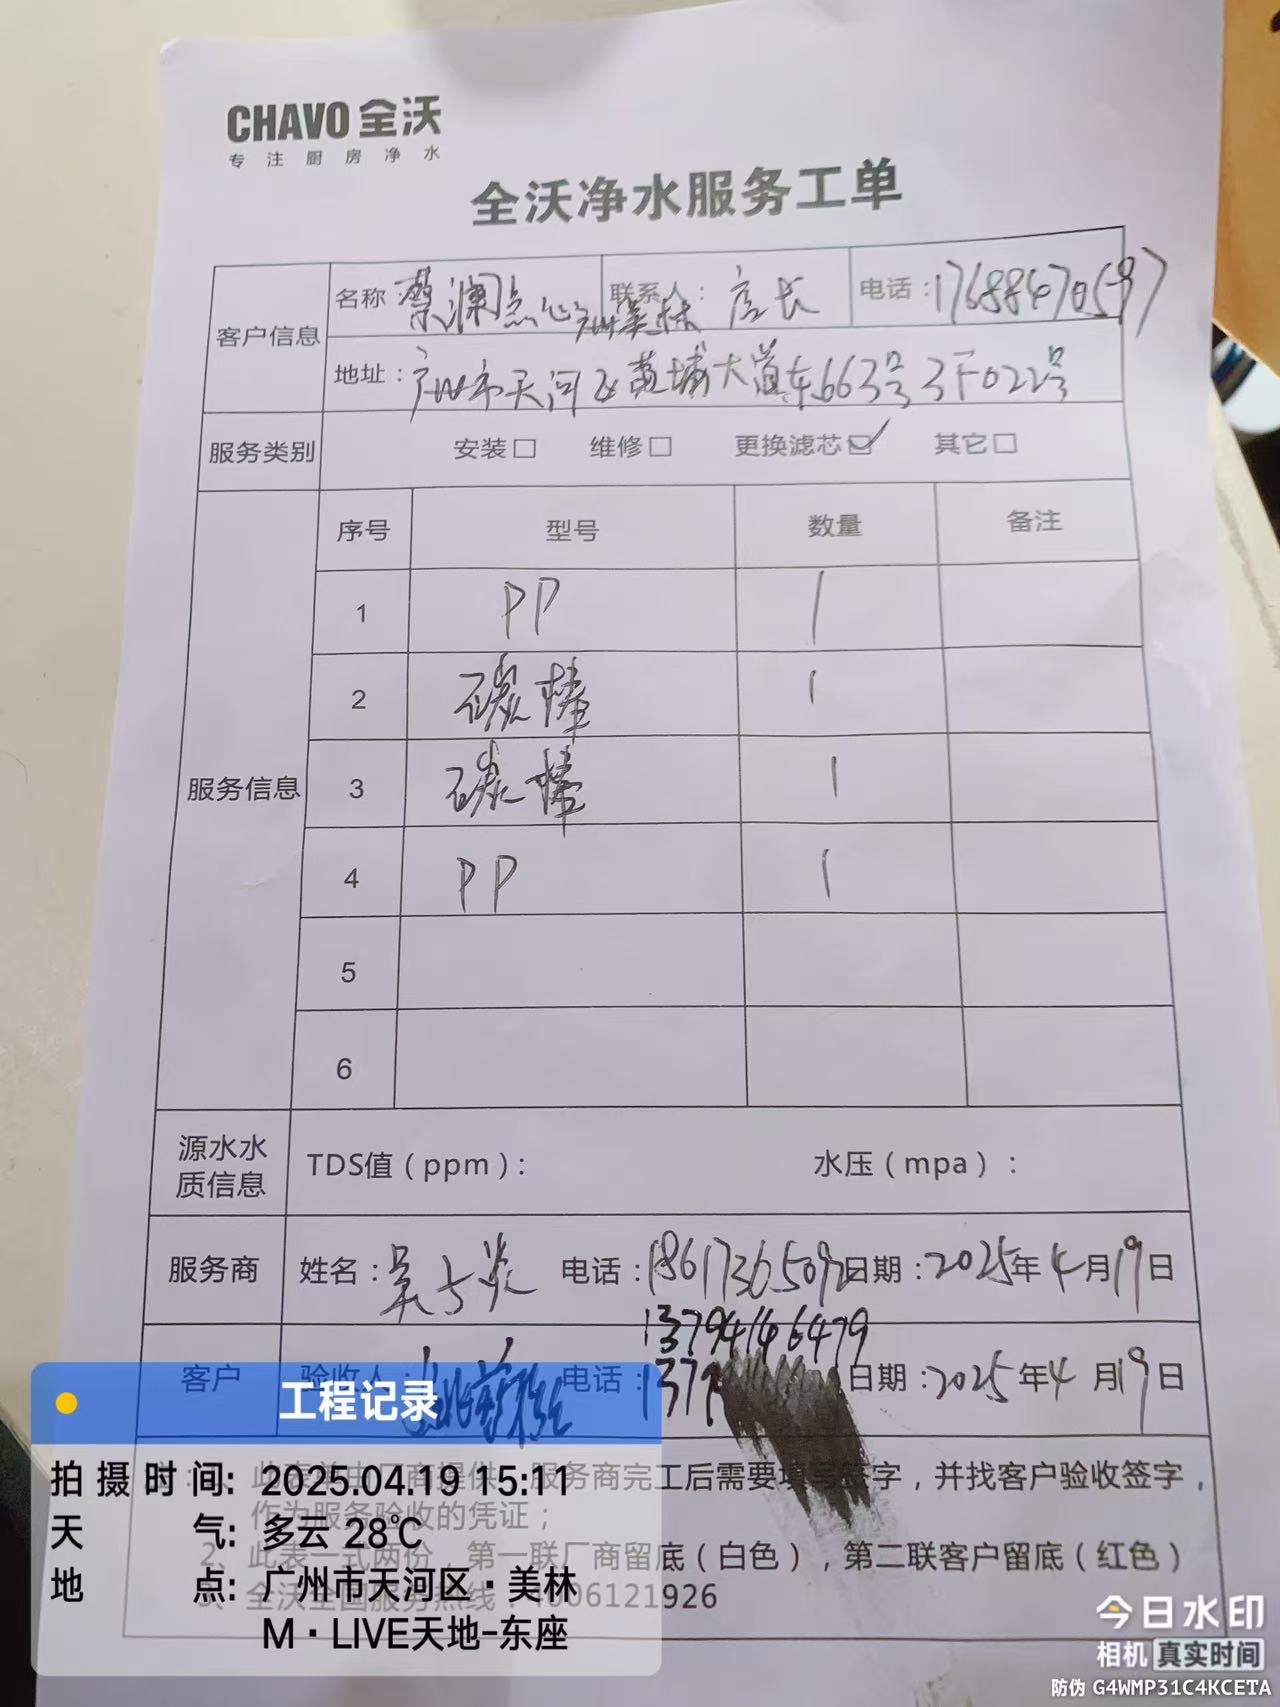 CHAVO 全沃
专注厨房净水
全沃净水服务工单
客户信息
名称：蔡澜点心广州美林
联系人：店长
电话：17688470597
地址：广州市天河区黄埔大道东663号3F022号
服务类别
安装□ 维修□ 更换滤芯☑ 其它□
服务信息
序号 型号 数量 备注
1 PP 1
2 碳棒 1
3 碳棒 1
4 PP 1
5
6
源水水质信息
TDS值（ppm）： 水压（mpa）：
服务商 姓名：吴 炎 电话：18617365092 日期：2025年4月19日
13794146479
客户 验收人： 电话：137 日期：2025年4月19日
此表单由厂商提供，服务商完工后需要填写签字，并找客户验收签字，
作为服务验收的凭证；
2、此表一式两份，第一联厂商留底（白色），第二联客户留底（红色）
3、全沃全国服务热线：4006121926
工程记录
拍摄时间：2025.04.19 15:11
天气：多云 28℃
地点：广州市天河区·美林
M·LIVE天地-东座
今日水印
相机 真实时间
防伪 G4WMP31C4KCETA